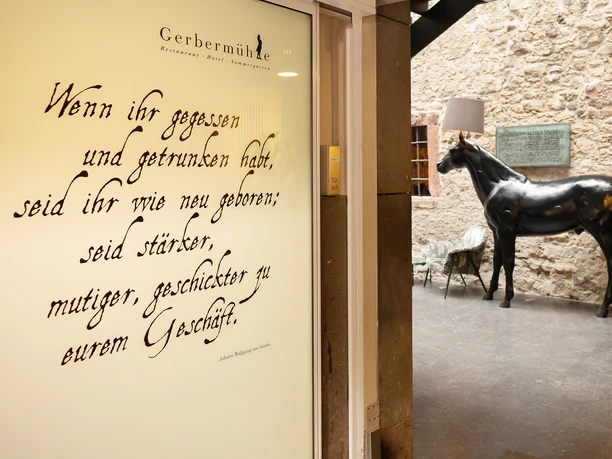 Gerbermühle
Restaurant · Hotel · Sommergarten
Wenn ihr gegessen
und getrunken habt,
seid ihr wie neu geboren;
seid stärker,
mutiger, geschickter zu
eurem Geschäft.
Johann Wolfgang von Goethe